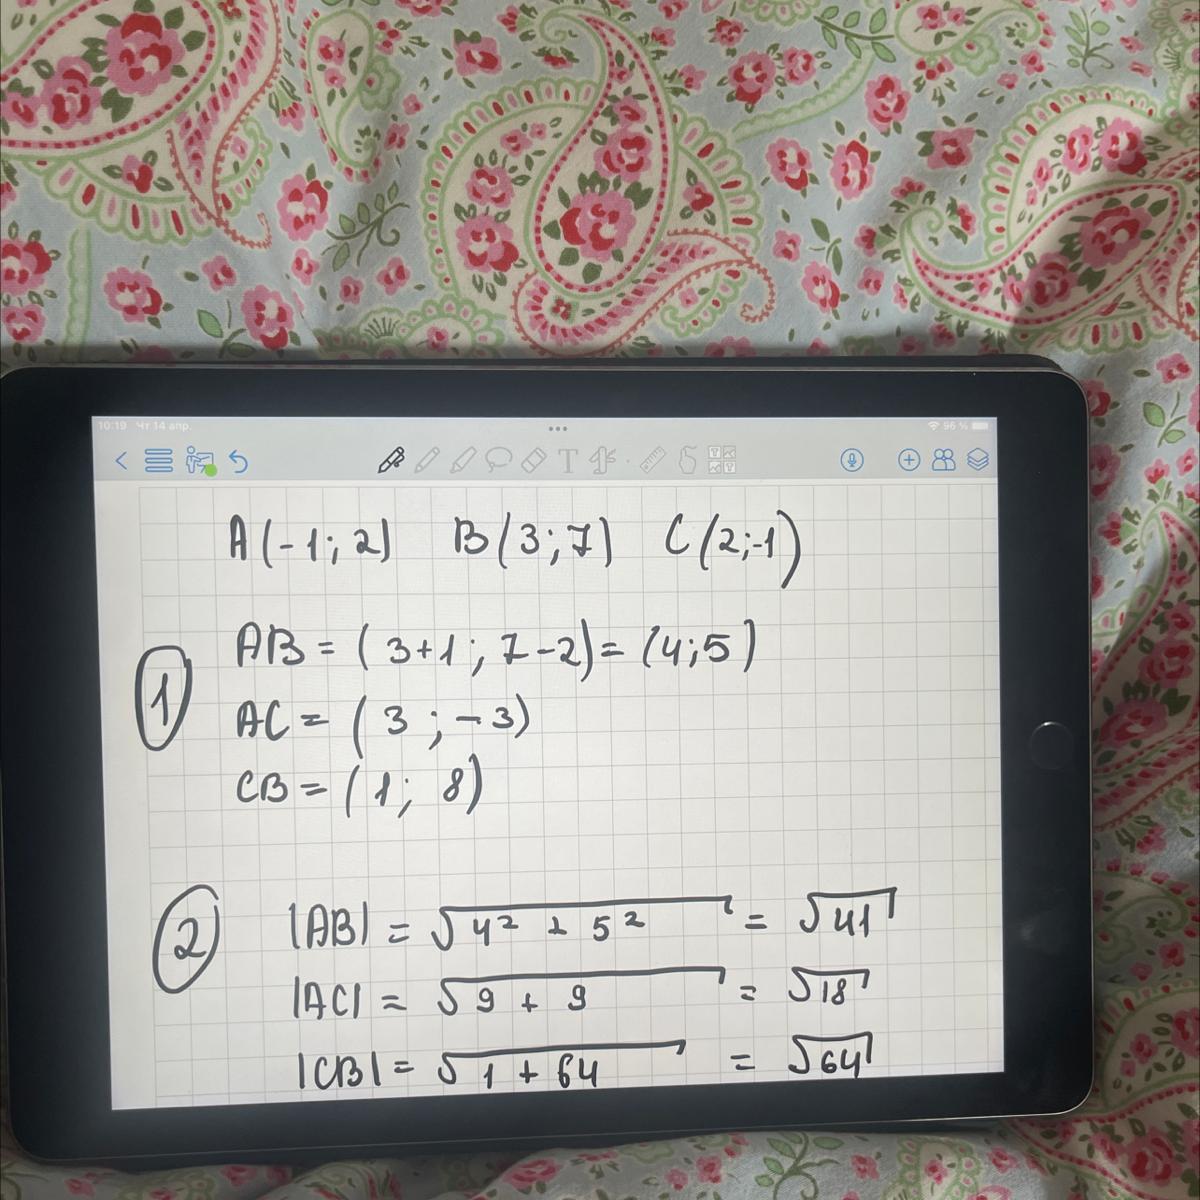 10:19 Чт 14 апр. 96 %
T
A(-1; 2) B(3; 7) C(2;-1)
1 AB = (3+1; 7-2) = (4;5)
AC = (3; -3)
CB = (1; 8)
2 |AB| = √4² + 5² = √41
|AC| = √9 + 9 = √18
|CB| = √1 + 64 = √64